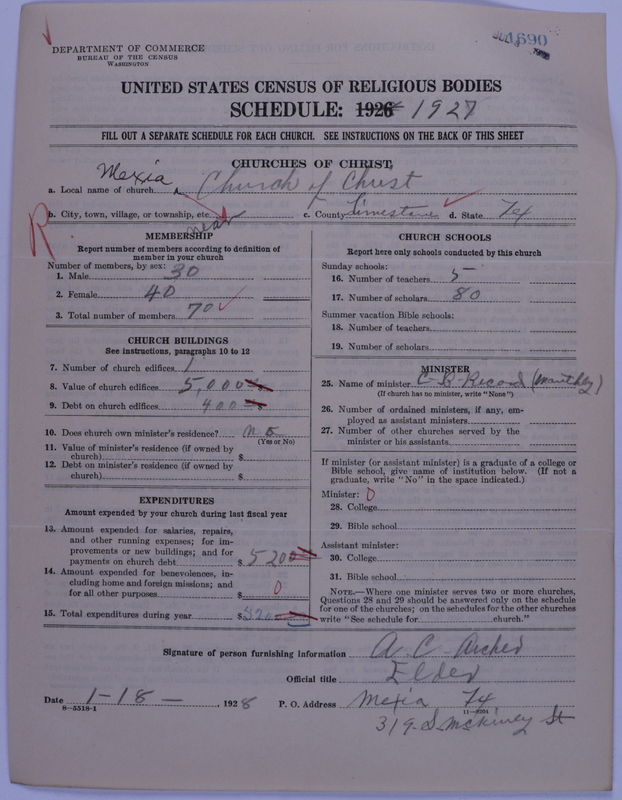 DEPARTMENT OF COMMERCE
BUREAU OF THE CENSUS
WASHINGTON
1690
UNITED STATES CENSUS OF RELIGIOUS BODIES
SCHEDULE: 1926 1927
FILL OUT A SEPARATE SCHEDULE FOR EACH CHURCH. SEE INSTRUCTIONS ON THE BACK OF THIS SHEET
CHURCHES OF CHRIST,
a. Local name of church Mexia Church of Christ
b. City, town, village, or township, etc. c. County Limestone d. State Tx
near
R
MEMBERSHIP
Report number of members according to definition of
member in your church
Number of members, by sex:
1. Male 30
2. Female 40
3. Total number of members 70
CHURCH BUILDINGS
See instructions, paragraphs 10 to 12
7. Number of church edifices 1
8. Value of church edifices 5,000
9. Debt on church edifices 400
10. Does church own minister's residence? no
(Yes or No)
11. Value of minister's residence (if owned by
church) $
12. Debt on minister's residence (if owned by
church) $
EXPENDITURES
Amount expended by your church during last fiscal year
13. Amount expended for salaries, repairs,
and other running expenses; for im-
provements or new buildings; and for
payments on church debt $ 520
14. Amount expended for benevolences, in-
cluding home and foreign missions; and
for all other purposes $ 0
15. Total expenditures during year $ 520
CHURCH SCHOOLS
Report here only schools conducted by this church
Sunday schools:
16. Number of teachers 5
17. Number of scholars 80
Summer vacation Bible schools:
18. Number of teachers
19. Number of scholars
MINISTER
25. Name of minister C B Record (Monthly)
(If church has no minister, write "None")
26. Number of ordained ministers, if any, em-
ployed as assistant ministers
27. Number of other churches served by the
minister or his assistants
If minister (or assistant minister) is a graduate of a college or
Bible school, give name of institution below. (If not a
graduate, write "No" in the space indicated.)
Minister: 0
28. College
29. Bible school
Assistant minister:
30. College
31. Bible school
NOTE.—Where one minister serves two or more churches,
Questions 28 and 29 should be answered only on the schedule
for one of the churches; on the schedules for the other churches
write "See schedule for church."
Signature of person furnishing information A C Archer
Official title Elder
Date 1-18-, 1928 P. O. Address Mexia Tx
8-5518-1
319 S. McKinney St